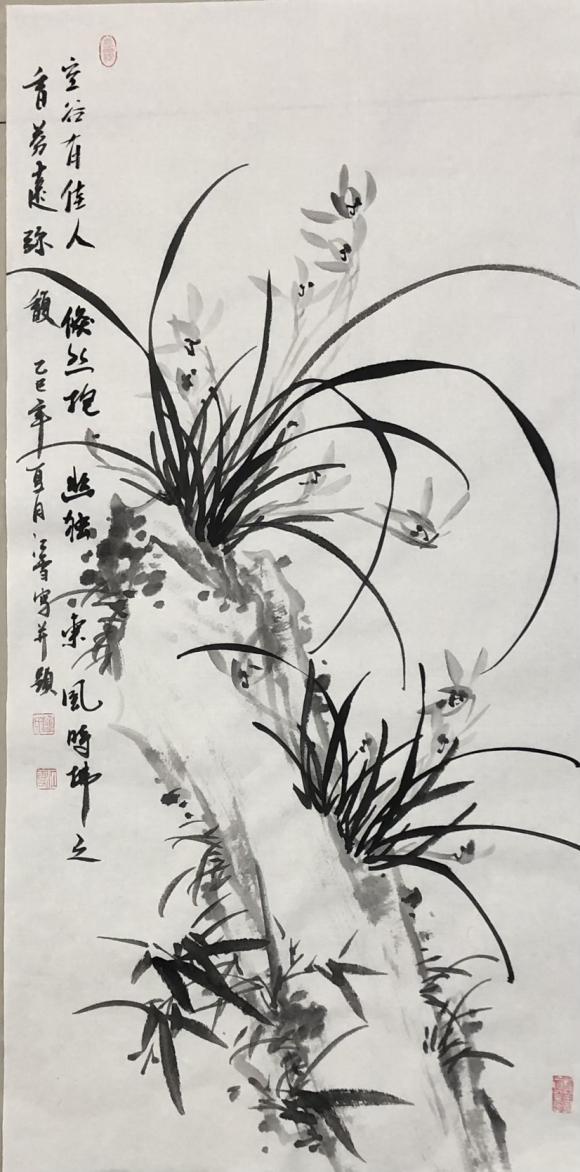 空谷有佳人 倏然抱幽独 东风时拂之
香芬远弥馥 乙巳年夏月 江雪写并题